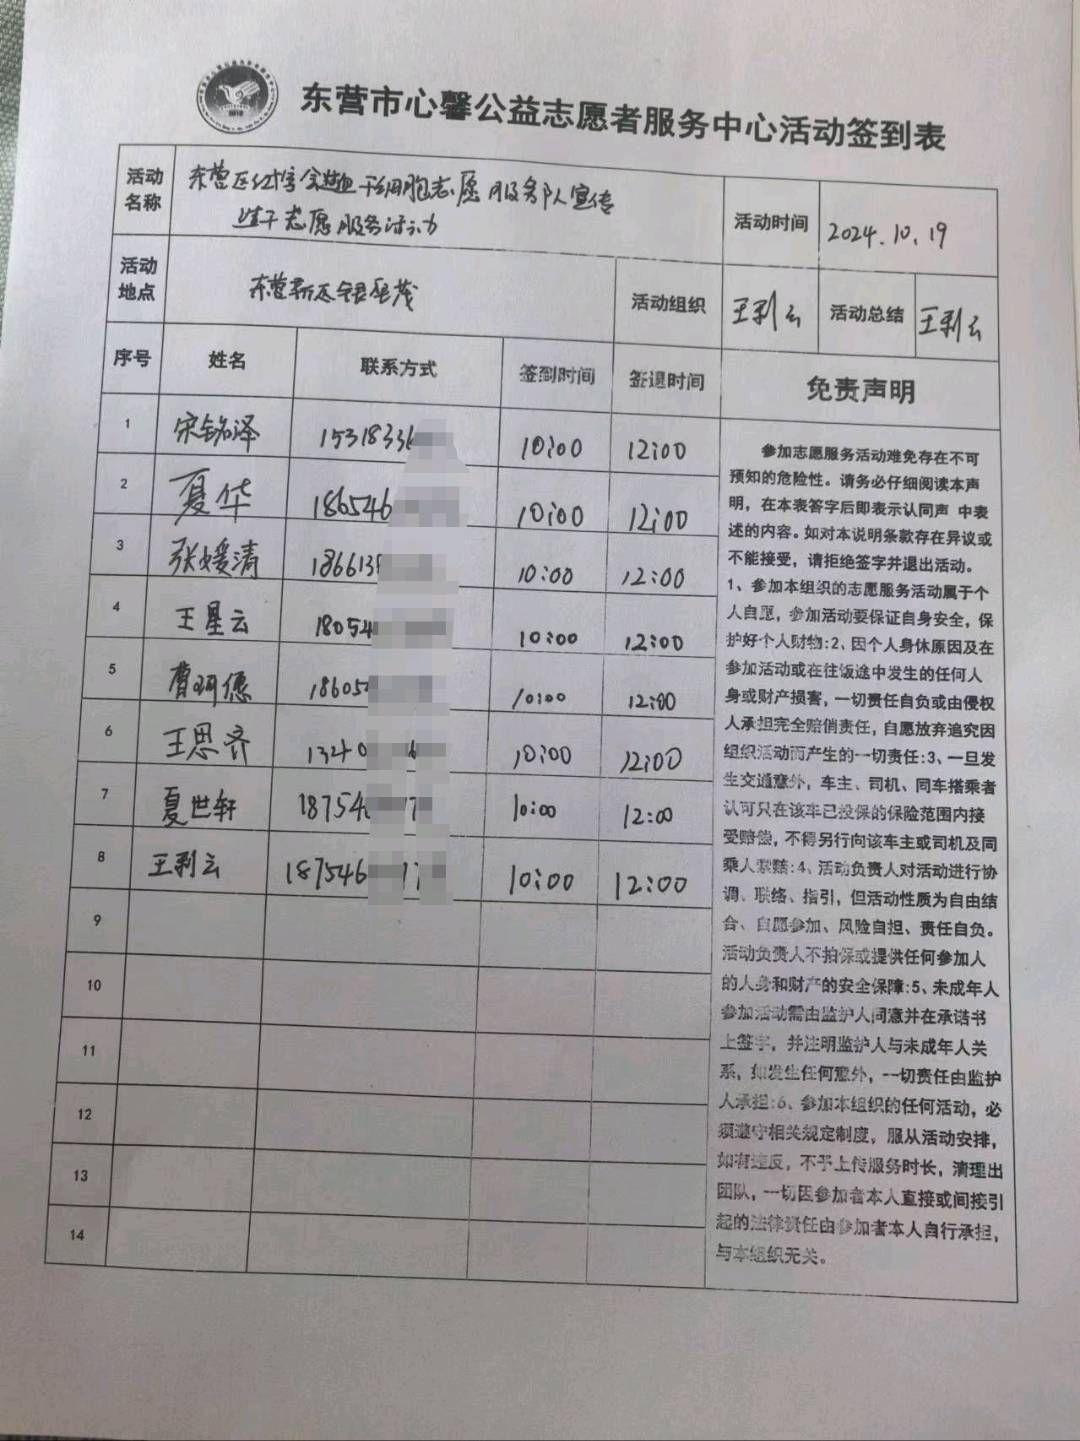 东营市心馨公益志愿者服务中心活动签到表
活动名称
东营区红十字会造血干细胞志愿服务队宣传
造干志愿服务活动
活动时间
2024.10.19
活动地点
活动组织
王利云
活动总结
王利云
序号 姓名 联系方式 签到时间 签退时间 免责声明
1 宋铭泽 15318336 10:00 12:00
2 夏华 186546 10:00 12:00
3 张媛清 1866135 10:00 12:00
4 王星云 18054 10:00 12:00
5 曹 德 18605 10:00 12:00
6 王思齐 1340 6 10:00 12:00
7 夏世轩 18754 7 10:00 12:00
8 王利云 187546 77 10:00 12:00
9
10
11
12
13
14
参加志愿服务活动难免存在不可
预知的危险性。请务必仔细阅读本声
明，在本表答字后即表示认同声 中表
述的内容。如对本说明条款存在异议或
不能接受，请拒绝签字并退出活动。
1、参加本组织的志愿服务活动属于个
人自愿，参加活动要保证自身安全，保
护好个人财物:2、因个人身休原因及在
参加活动或在往饭途中发生的任何人
身或财产损害，一切责任自负或由侵权
人承担完全赔偿责任，自愿放弃追究因
组织活动而产生的一切责任:3、一旦发
生交通意外，车主、司机、同车搭乘者
认可只在该车已投保的保险范围内接
受赔偿，不得另行向该车主或司机及同
乘人索赔:4、活动负责人对活动进行协
调、联络、指引，但活动性质为自由结
合、自愿参加、风险自担、责任自负。
活动负责人不拍保或提供任何参加人
的人身和财产的安全保障:5、未成年人
参加活动需由监护人同意并在承诺书
上签字，并注明监护人与未成年人关
系，如发生任何意外，一切责任由监护
人承担:6、参加本组织的任何活动，必
须遵守相关规定制度，服从活动安排，
如有违反，不予上传服务时长，清理出
团队，一切因参加者本人直接或间接引
起的法律责任由参加者本人自行承担，
与本组织无关。